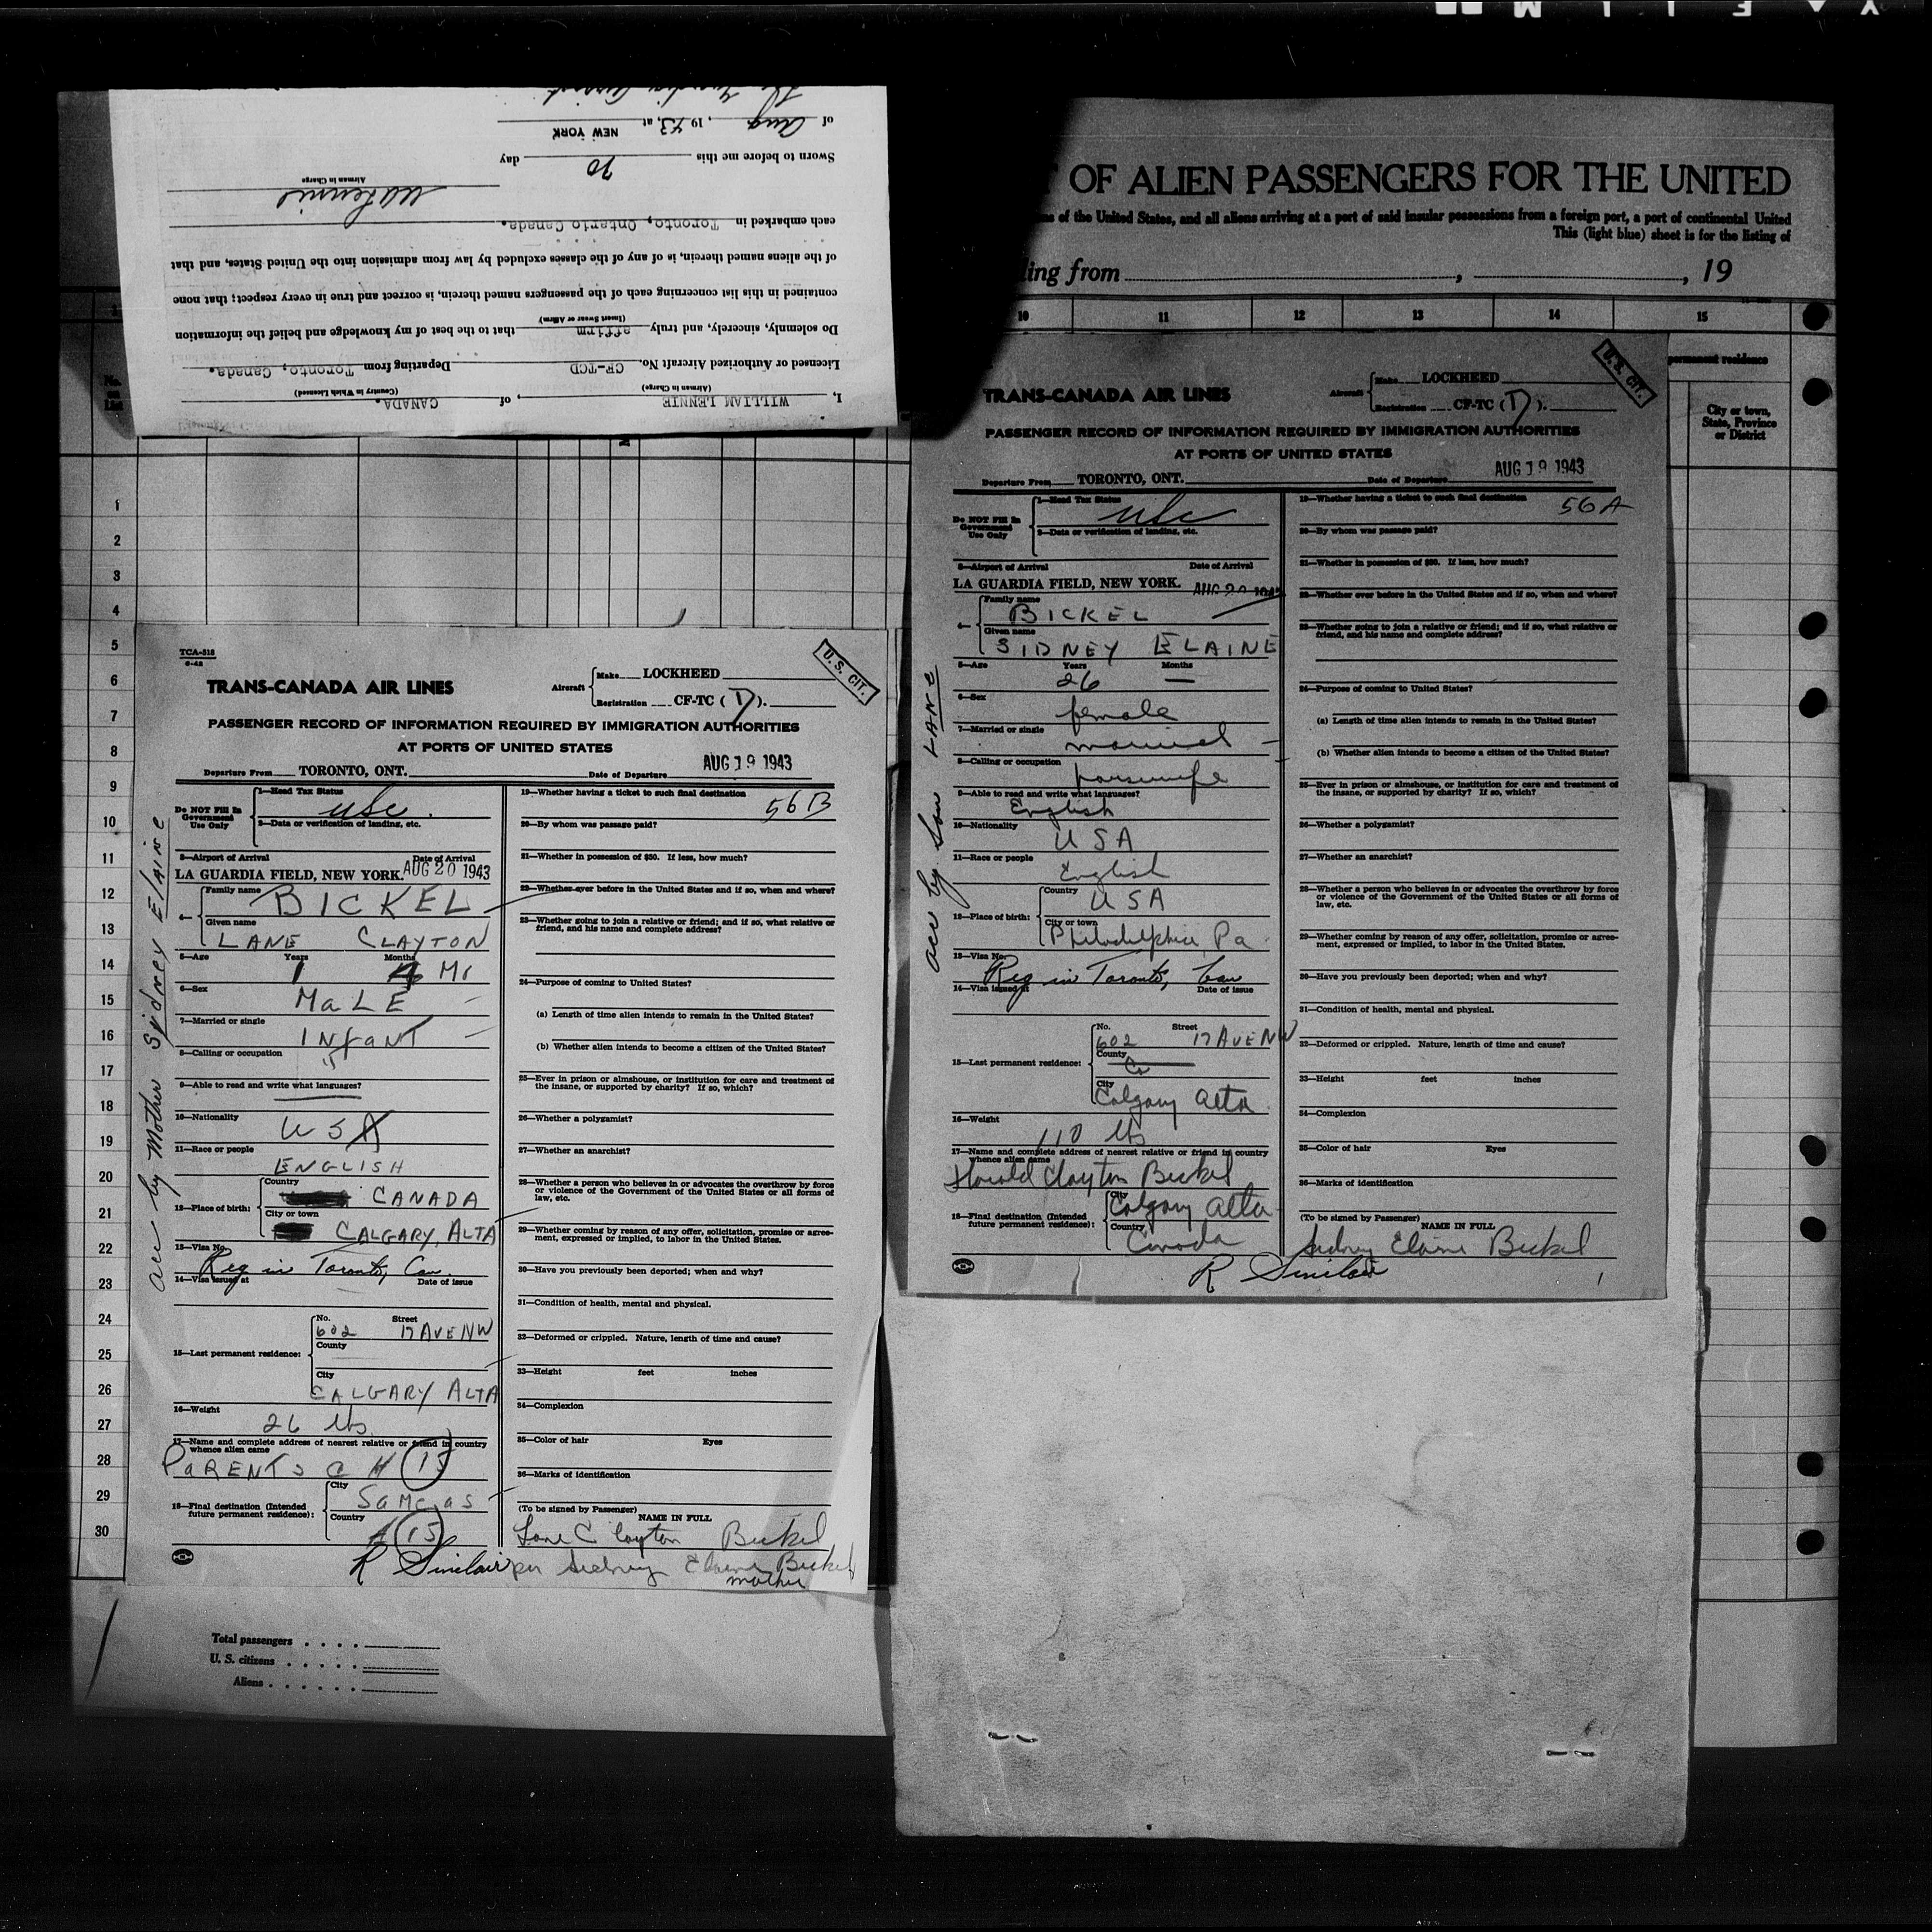 OF ALIEN PASSENGERS FOR THE UNITED
of the United States, and all aliens arriving at a port of said insular possessions from a foreign port, a port of continental United
This (light blue) sheet is for the listing of
ing from , , 19
10 11 12 13 14 15
permanent residence
City or town,
State, Province
or District
No.
on
List
I, WILLIAM LENNIE, of CANADA.
(Airman in Charge) (Country in Which Licensed)
Licensed or Authorized Aircraft No. CF-TCD Departing from Toronto, Canada.
Do solemnly, sincerely, and truly affirm that to the best of my knowledge and belief the information
(Insert Swear or Affirm)
contained in this list concerning each of the passengers named therein, is correct and true in every respect; that none
of the aliens named therein, is of any of the classes excluded by law from admission into the United States, and that
each embarked in Toronto, Ontario Canada.
Airman in Charge
Sworn to before me this 20 day
of Aug, 1943, at NEW YORK
1
2
3
4
5
6
7
8
9
10
11
12
13
14
15
16
17
18
19
20
21
22
23
24
25
26
27
28
29
30
TCA-518
6-42
U. S. CIT.
TRANS-CANADA AIR LINES
Aircraft
Make LOCKHEED
Registration CF-TC (D).
PASSENGER RECORD OF INFORMATION REQUIRED BY IMMIGRATION AUTHORITIES
AT PORTS OF UNITED STATES
Departure From TORONTO, ONT. Date of Departure AUG 19 1943
Do NOT Fill In
Government
Use Only
1—Head Tax Status
usc
2—Data or verification of landing, etc.
3—Airport of Arrival Date of Arrival
LA GUARDIA FIELD, NEW YORK. AUG 20 1943
4— Family name
BICKEL
Given name
LANE CLAYTON
5—Age Years Months
1 4 Ms
6—Sex
MaLE
7—Married or single
INfaNT
8—Calling or occupation
9—Able to read and write what languages?
10—Nationality
USA
11—Race or people
ENGLISH
12—Place of birth:
Country
CANADA
City or town
CALGARY, ALTA
13—Visa No.
Reg in Toronto, Can.
14—Visa issued at Date of issue
15—Last permanent residence:
No. Street
602 17 AVE NW
County
City
CALGARY ALTA
16—Weight
26 lbs.
17—Name and complete address of nearest relative or friend in country
whence alien came
PaRENTS 15
18—Final destination (Intended
future permanent residence):
City
Same as
Country
15
R Sinclair
acc by Mother Sydney Elaine
19—Whether having a ticket to such final destination
56B
20—By whom was passage paid?
21—Whether in possession of $50. If less, how much?
22—Whether ever before in the United States and if so, when and where?
23—Whether going to join a relative or friend; and if so, what relative or
friend, and his name and complete address?
24—Purpose of coming to United States?
(a) Length of time alien intends to remain in the United States?
(b) Whether alien intends to become a citizen of the United States?
25—Ever in prison or almshouse, or institution for care and treatment of
the insane, or supported by charity? If so, which?
26—Whether a polygamist?
27—Whether an anarchist?
28—Whether a person who believes in or advocates the overthrow by force
or violence of the Government of the United States or all forms of
law, etc.
29—Whether coming by reason of any offer, solicitation, promise or agree-
ment, expressed or implied, to labor in the United States.
30—Have you previously been deported; when and why?
31—Condition of health, mental and physical.
32—Deformed or crippled. Nature, length of time and cause?
33—Height feet inches
34—Complexion
35—Color of hair Eyes
36—Marks of identification
(To be signed by Passenger)
NAME IN FULL
Lane Clayton Bickel
per Sidney Elaine Bickel
mother
Total passengers . . . .
U. S. citizens . . . . .
Aliens . . . . . .
U. S. CIT.
TRANS-CANADA AIR LINES
Aircraft
Make LOCKHEED
Registration CF-TC (D).
PASSENGER RECORD OF INFORMATION REQUIRED BY IMMIGRATION AUTHORITIES
AT PORTS OF UNITED STATES
Departure From TORONTO, ONT. Date of Departure AUG 19 1943
Do NOT Fill In
Government
Use Only
1—Head Tax Status
usc
2—Data or verification of landing, etc.
3—Airport of Arrival Date of Arrival
LA GUARDIA FIELD, NEW YORK. AUG 20 1943
4— Family name
BICKEL
Given name
SIDNEY ELAINE
5—Age Years Months
26 —
6—Sex
female
7—Married or single
married
8—Calling or occupation
housewife
9—Able to read and write what languages?
English
10—Nationality
USA
11—Race or people
English
12—Place of birth:
Country
USA
City or town
Philadelphia, Pa.
13—Visa No.
Reg in Toronto, Can
14—Visa issued at Date of issue
15—Last permanent residence:
No. Street
602 17 AVE NW
County
City
Calgary Alta.
16—Weight
110 lbs
17—Name and complete address of nearest relative or friend in country
whence alien came
Harold Clayton Bickel
18—Final destination (Intended
future permanent residence):
City
Calgary Alta
Country
Canada
R Sinclair
acc by Son LANE
19—Whether having a ticket to such final destination
56A
20—By whom was passage paid?
21—Whether in possession of $50. If less, how much?
22—Whether ever before in the United States and if so, when and where?
23—Whether going to join a relative or friend; and if so, what relative or
friend, and his name and complete address?
24—Purpose of coming to United States?
(a) Length of time alien intends to remain in the United States?
(b) Whether alien intends to become a citizen of the United States?
25—Ever in prison or almshouse, or institution for care and treatment of
the insane, or supported by charity? If so, which?
26—Whether a polygamist?
27—Whether an anarchist?
28—Whether a person who believes in or advocates the overthrow by force
or violence of the Government of the United States or all forms of
law, etc.
29—Whether coming by reason of any offer, solicitation, promise or agree-
ment, expressed or implied, to labor in the United States.
30—Have you previously been deported; when and why?
31—Condition of health, mental and physical.
32—Deformed or crippled. Nature, length of time and cause?
33—Height feet inches
34—Complexion
35—Color of hair Eyes
36—Marks of identification
(To be signed by Passenger)
NAME IN FULL
Sidney Elaine Bickel